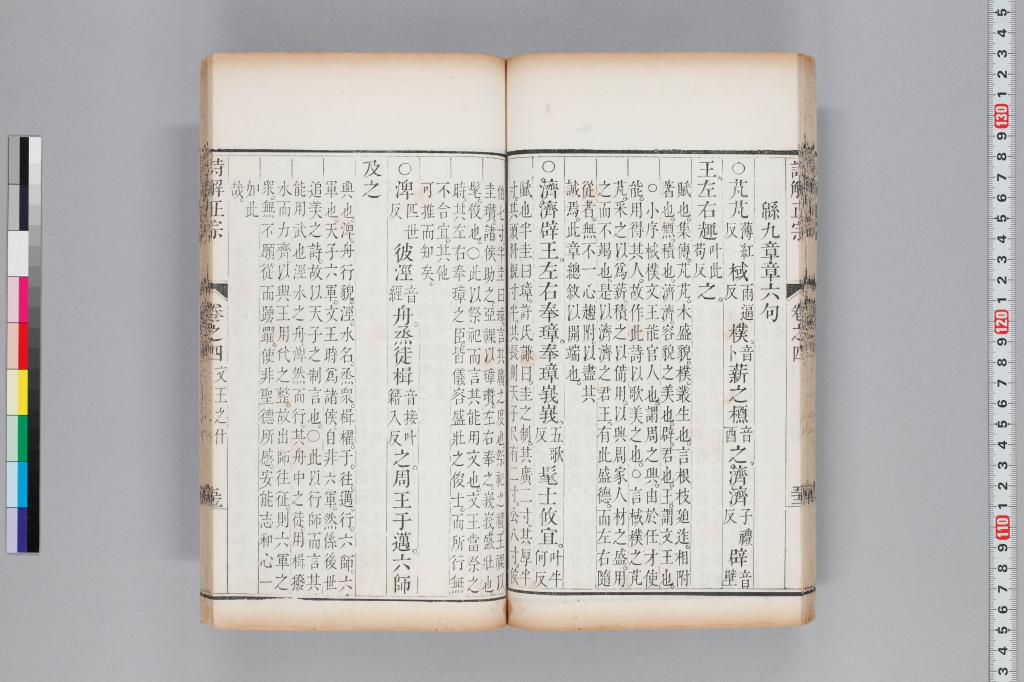 詩解正宗 卷之四
緜九章章六句
○芃芃薄紅反棫雨逼反樸音卜薪之槱音酉之濟濟子禮反辟音璧
王左右趣叶此苟反之
賦也集傳芃芃木盛貌樸叢生也言根枝廹迮相附
著也槱積也濟濟容貌之美也辟君也王謂文王也
○小序棫樸文王能官人也謂周之興由於任才使
能用得其人故作此詩以歌美之也○言棫樸之芃
芃采之以爲薪積之以備用以興周家人材之盛用
之而不竭也是以濟濟之君王有此盛德而左右隨
從者無不一心趨附以盡其
誠焉此章總敘以開端也
○濟濟辟王左右奉璋奉璋峩峩五歌反髦士攸宜叶牛何反
賦也半圭曰璋許氏謙曰圭之制其廣二寸其厚半
圭瓚諸侯助之亞祼以璋瓚左右奉之峩峩盛壯也
髦俊也○此以祭祀而言其能用文也文王當祭之
時其左右奉璋之臣皆儀容盛壯之俊士而所行無
不合宜其他
可推而知矣
○淠匹世反彼涇音經舟烝徒楫音接叶籍入反之周王于邁六師
及之
興也淠舟行貌涇水名烝衆楫櫂于往邁行六師六
軍也天子六軍文王時爲諸侯自非六軍然係後世
追美之詩故以天子之制言也○此以行師而言其
能用武也涇水之舟淠然而行其舟中之徒用楫撥
水而力齊以興王用代之整故出師往征則六軍之
衆無不願從而踴躍使非聖德所感安能志和心一
如此
哉
詩解正宗 卷之四 文王之什